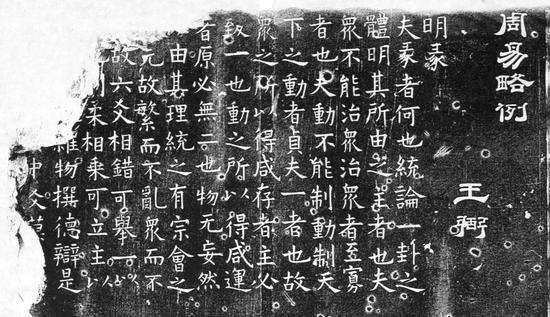 周易略例 王弼
明彖
夫彖者何也統論一卦之
體明其所由之主者也夫
眾不能治眾治眾者至寡
者也夫動不能制動制天
下之動者貞夫一者也故
眾之所以得咸存者主必
致一也動之所以得咸運
者原必無二也物无妄然
由其理統之有宗會之
元故繁而不亂眾而不
故六爻相錯可舉一以
柔相乘可立主以
物撰德辯是
中爻